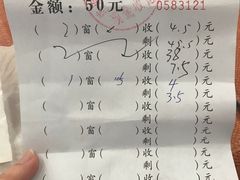 金额：50元 0583121
( 2 )窗( )收( 4.5 )元
剩( 45.5 )元
( )窗( )收( 38 )元
剩( 7.5 )元
( 1 )窗( )收( 4 )元
剩( 3.5 )元
( )窗( )收( )元
剩( )元
( )窗( )收( )元
剩( )元
( )窗( )收( )元